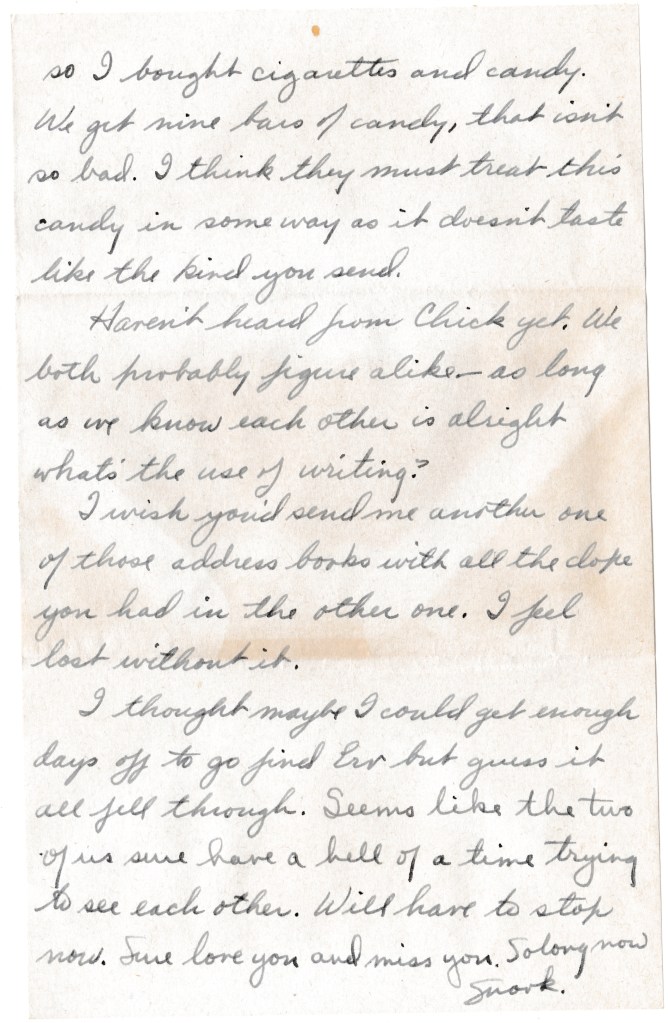 so I bought cigarettes and candy.
We get nine bars of candy, that isn't
so bad. I think they must treat this
candy in some way as it doesn't taste
like the kind you send.
Haven't heard from Chick yet. We
both probably figure alike — as long
as we know each other is alright
what's the use of writing?
I wish you'd send me another one
of those address books with all the dope
you had in the other one. I feel
lost without it.
I thought maybe I could get enough
days off to go find Erv but guess it
all fell through. Seems like the two
of us sure have a hell of a time trying
to see each other. Will have to stop
now. Sure love you and miss you. So long now
Snork.